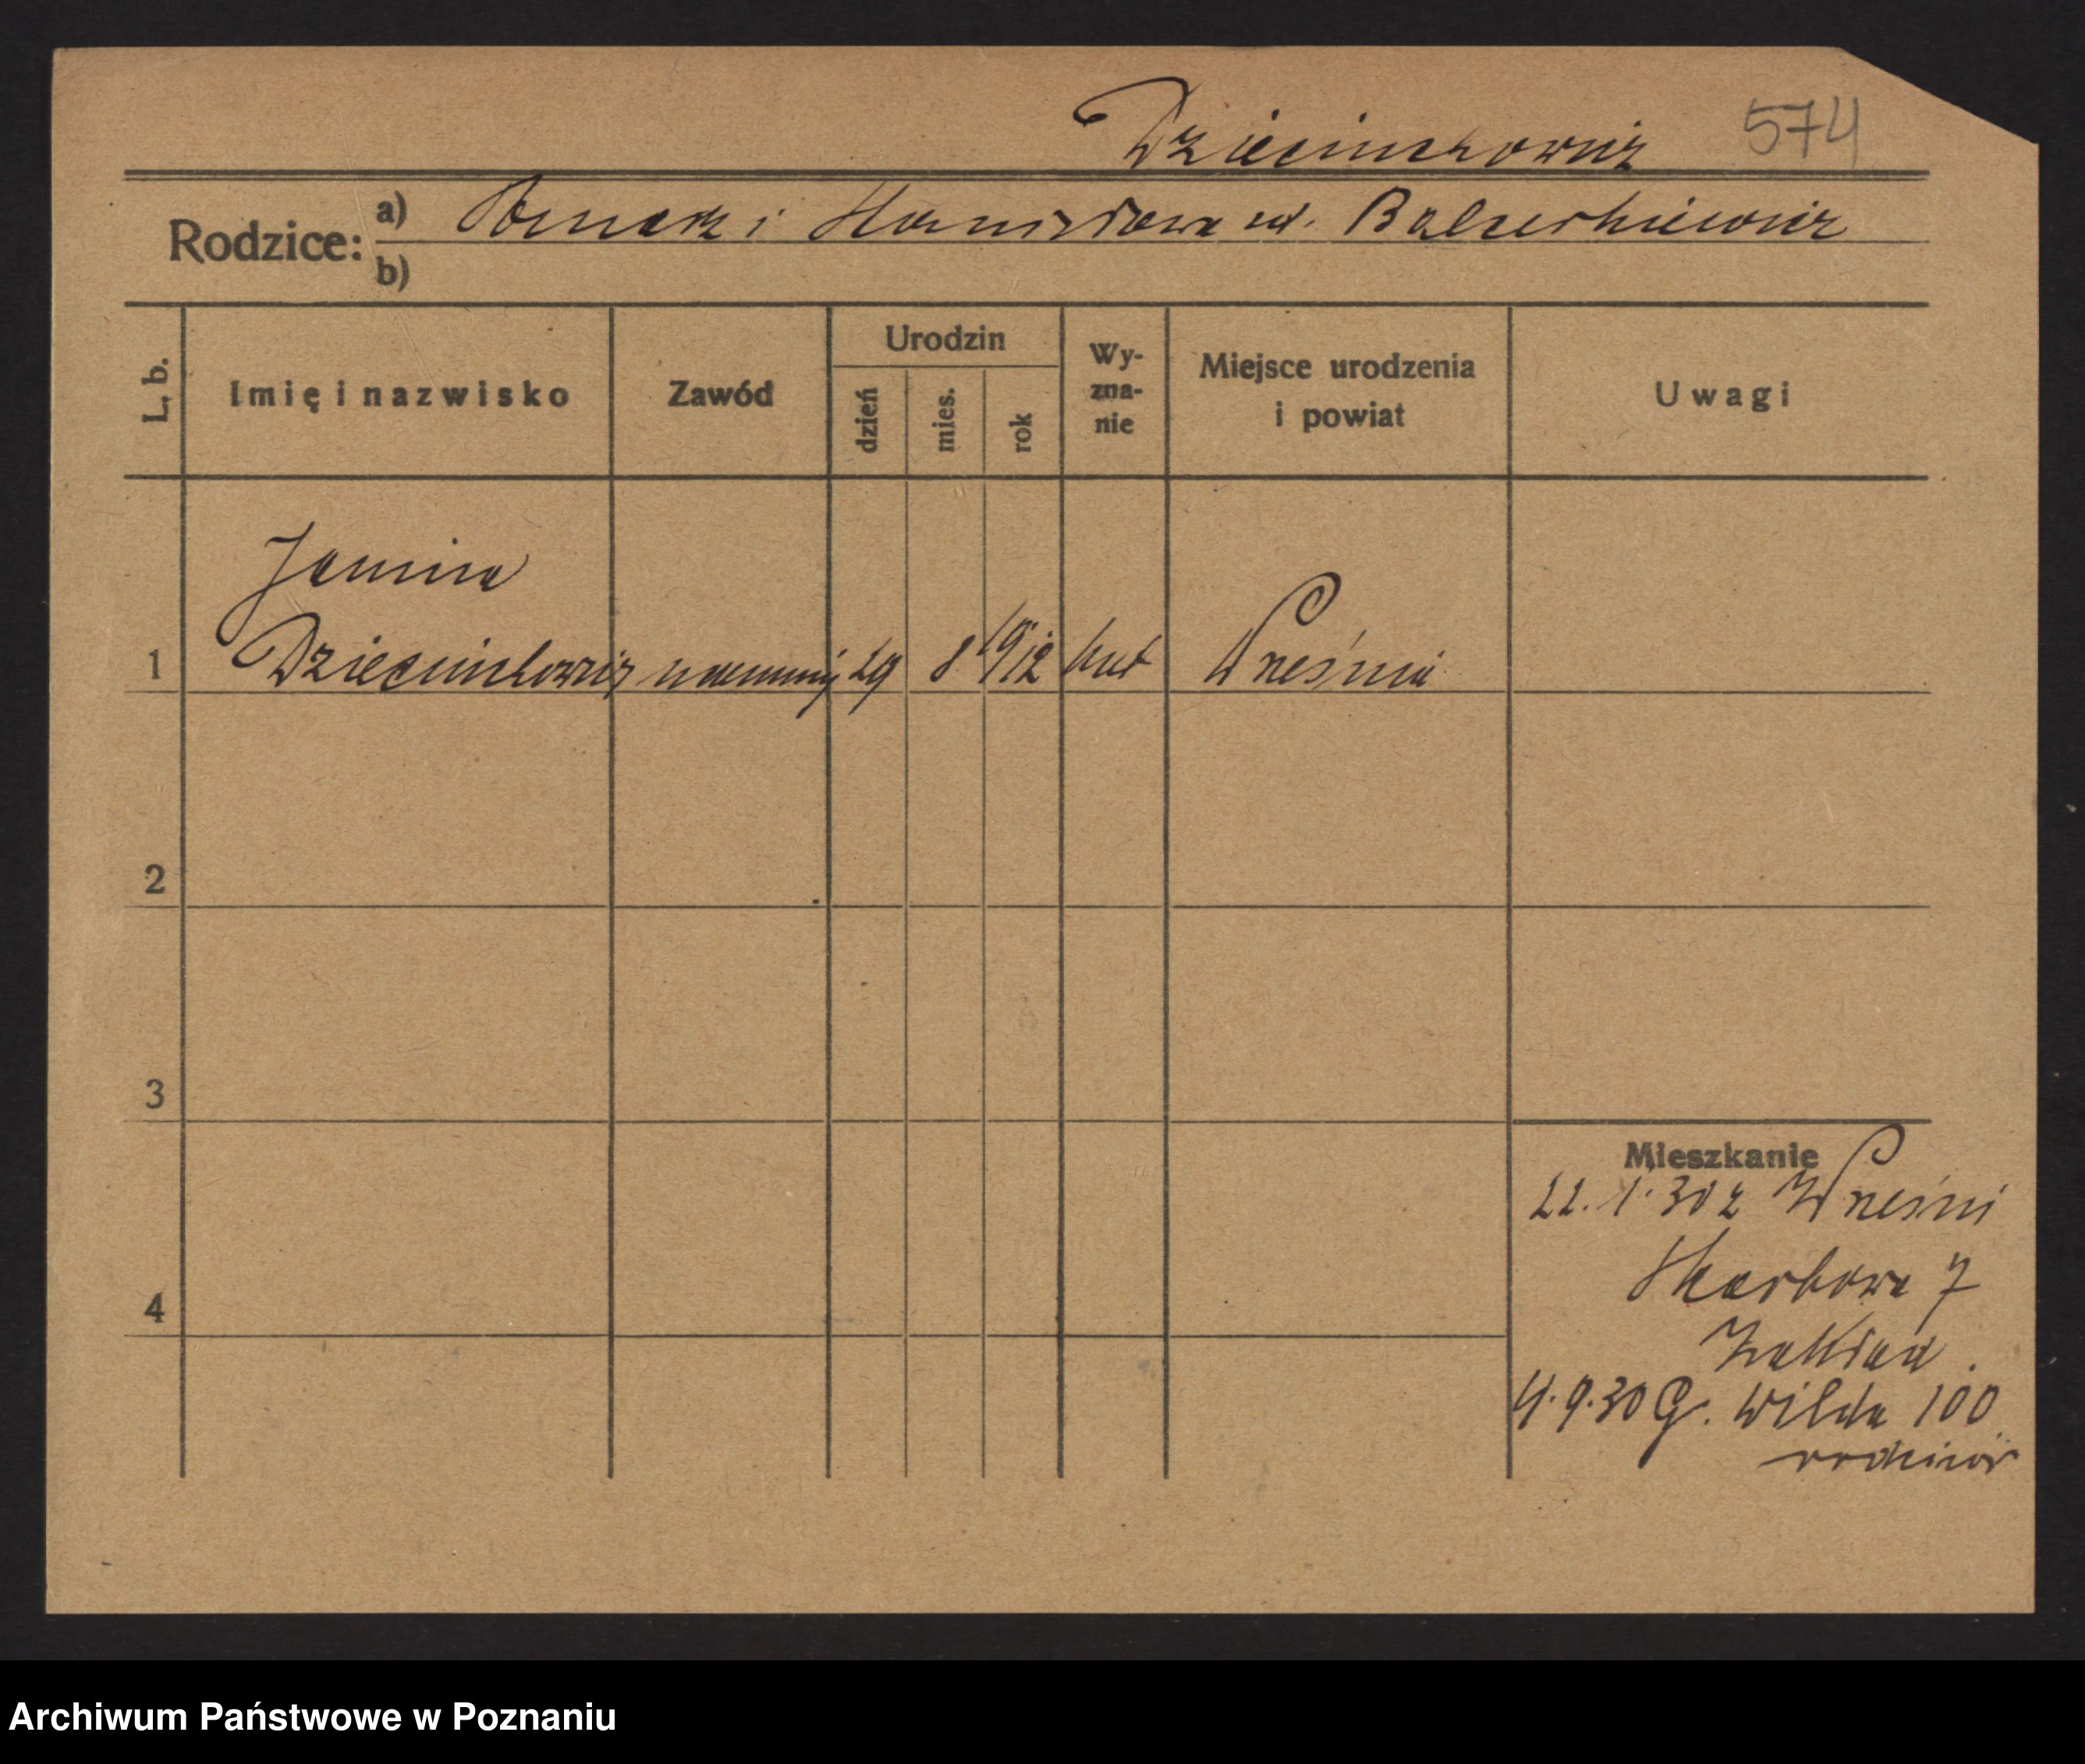 Dzieciuchowicz 574
Rodzice: a) Tomasz i Stanisława ur. Balcerkiewicz
b)
L. b.
Imię i nazwisko
Zawód
Urodzin
dzień
mies.
rok
Wy-
zna-
nie
Miejsce urodzenia
i powiat
Uwagi
Janina
1 Dzieciuchowicz uczennica 29 8 1912 kat Września
2
3
4
Mieszkanie
22. 1. 30 z Wrześni
Skarbowa 7
Zakład.
4. 9. 30 G. Wilda 100
Archiwum Państwowe w Poznaniu